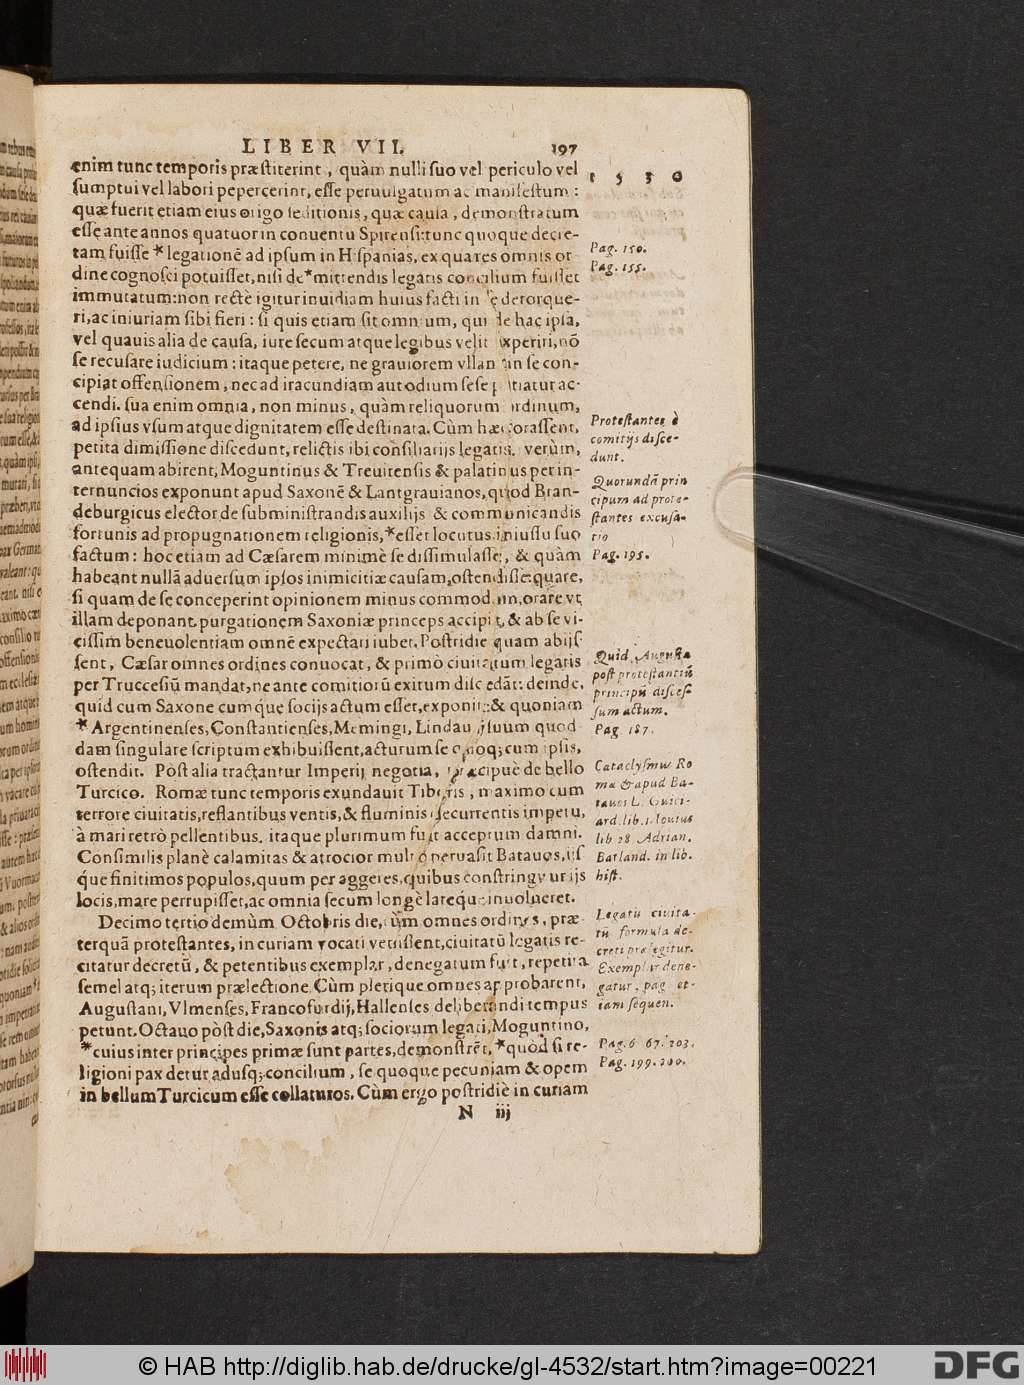 LIBER VII. 197
enim tunc temporis præstiterint, quàm nulli suo vel periculo vel
sumptui vel labori pepercerint, esse peruulgatum ac manifestum:
quæ fuerit etiam eius origo seditionis, quæ causa, demonstratum
esse ante annos quatuor in conuentu Spirensi: tunc quoque decre-
tam fuisse * legationē ad ipsum in Hispanias, ex qua res omnis or
dine cognosci potuisset, nisi de * mittendis legatis consilium fuisset
immutatum: non rectè igitur inuidiam huius facti in detorque-
ri, ac iniuriam sibi fieri: si quis etiam sit omnium, qui de hac ipsa,
vel quauis alia de causa, iure secum atque legibus velit experiri, nō
se recusare iudicium: itaque petere, ne grauiorem vllam in se con-
cipiat offensionem, nec ad iracundiam aut odium sese patiatur ac-
cendi. sua enim omnia, non minus, quàm reliquorum ordinum,
ad ipsius vsum atque dignitatem esse destinata. Cùm hæc orassent,
petita dimissione discedunt, relictis ibi consiliarijs legatis. verùm,
antequam abirent, Moguntinus & Treuirensis & palatinus per in-
ternuncios exponunt apud Saxonē & Lantgrauianos, quod Bran-
deburgicus elector de subministrandis auxilijs & communicandis
fortunis ad propugnationem religionis, * esset locutus, iniussu suo
factum: hoc etiam ad Cæsarem minimè se dissimulasse, & quàm
habeant nullā aduersum ipsos inimicitiæ causam, ostendisse: quare,
si quam de se conceperint opinionem minus commodam, orare vt
illam deponant. purgationem Saxoniæ princeps accipit, & ab se vi-
cissim beneuolentiam omnē expectari iubet. Postridie quam abijs-
sent, Cæsar omnes ordines conuocat, & primò ciuitatum legatis
per Truccesiū mandat, ne ante comitiorū exitum discedāt: deinde,
quid cum Saxone cumque socijs actum esset, exponit: & quoniam
* Argentinenses, Constantienses, Memingi, Lindau ijsuum quod
dam singulare scriptum exhibuissent, acturum se quoq; cum ipsis,
ostendit. Pòst alia tractantur Imperij negotia, præcipuè de bello
Turcico. Romæ tunc temporis exundauit Tiberis, maximo cum
terrore ciuitatis, reflantibus ventis, & fluminis decurrentis impetu,
à mari retrò pellentibus. itaque plurimum fuit acceptum damni.
Consimilis planè calamitas & atrocior multò peruasit Batauos, ijs
que finitimos populos, quum per aggeres, quibus constringuur ijs
locis, mare perrupisset, ac omnia secum longè latequè inuolueret.
Decimo tertio demùm Octobris die, cùm omnes ordines, præ-
terquā protestantes, in curiam vocati venissent, ciuitatū legatis re-
citatur decretū, & petentibus exemplar, denegatum fuit, repetita
semel atq; iterum prælectione. Cùm plerique omnes approbarent,
Augustani, Vlmenses, Francofurdij, Hallenses deliberandi tempus
petunt. Octauo pòst die, Saxonis atq; sociorum legati, Moguntino,
* cuius inter principes primæ sunt partes, demonstrēt, * quòd si re-
ligioni pax detur adusq; concilium, se quoque pecuniam & opem
in bellum Turcicum esse collaturos. Cùm ergo postridiè in curiam
N iij
1 5 3 0
Pag. 150.
Pag. 155.
Protestantes è
comitijs disce-
dunt.
Quorundā prin
cipum ad prote-
stantes excusa-
tio
Pag. 195.
Quid Augusta
post protestantiū
principū disces
sum actum.
Pag 187.
Cataclysmus Ro
mæ & apud Ba-
tauos L. Guici-
ard. lib. 1. Iouius
lib 28 Adrian.
Batland. in lib.
hist.
Legatis ciuita-
tū formula de-
creti prælegitur.
Exemplar dene-
gatur. pag et-
iam sequen.
Pag. 6 67. 203.
Pag. 199. 200.
© HAB http://diglib.hab.de/drucke/gl-4532/start.htm?image=00221
DFG